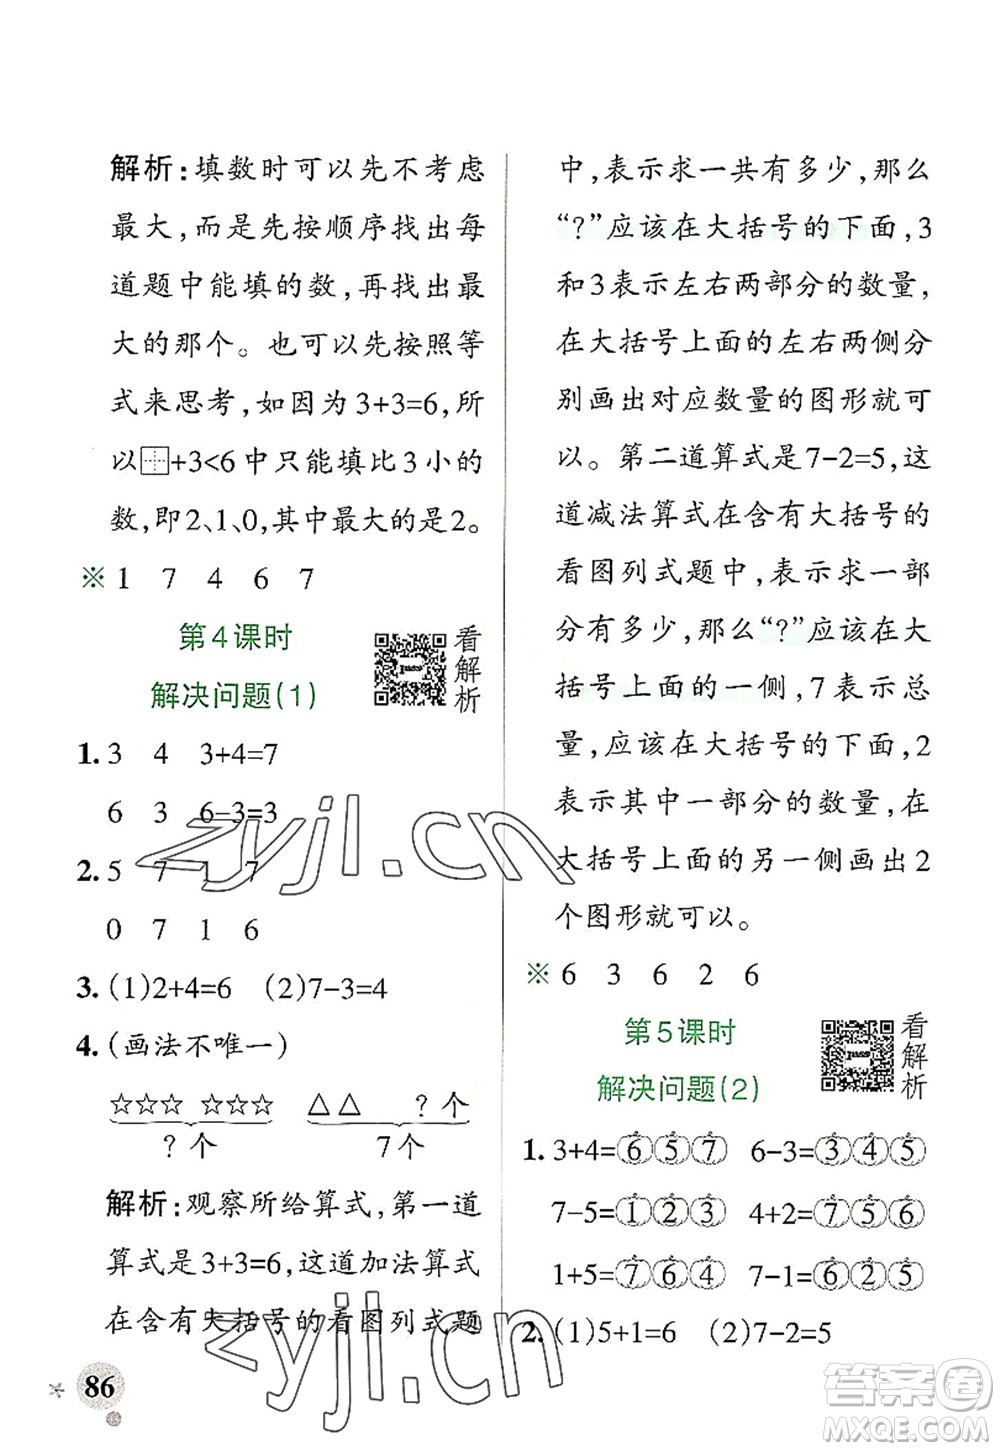 解析:填数时可以先不考虑
最大,而是先按顺序找出每
道题中能填的数,再找出最
大的那个。也可以先按照等
式来思考,如因为3+3=6,所
以□+3<6中只能填比3小的
数,即2、1、0,其中最大的是2。
※1 7 4 6 7
第4课时
解决问题(1)
看解析
1. 3 4 3+4=7
6 3 6-3=3
2. 5 7 1 7
0 7 1 6
3. (1)2+4=6 (2)7-3=4
4. (画法不唯一)
☆☆☆ ☆☆☆ △△ ?个
?个 7个
解析:观察所给算式,第一道
算式是3+3=6,这道加法算式
在含有大括号的看图列式题
86
中,表示求一共有多少,那么
“?”应该在大括号的下面,3
和3表示左右两部分的数量,
在大括号上面的左右两侧分
别画出对应数量的图形就可
以。第二道算式是7-2=5,这
道减法算式在含有大括号的
看图列式题中,表示求一部
分有多少,那么“?”应该在大
括号上面的一侧,7表示总
量,应该在大括号的下面,2
表示其中一部分的数量,在
大括号上面的另一侧画出2
个图形就可以。
※6 3 6 2 6
第5课时
解决问题(2)
看解析
1. 3+4=⑥⑤⑦ 6-3=③④⑤
7-5=①②③ 4+2=⑦⑤⑥
1+5=⑦⑥④ 7-1=⑥②⑤
2. (1)5+1=6 (2)7-2=5
zyjl.cn
zyjl.cn
答案圈
MXQE.COM